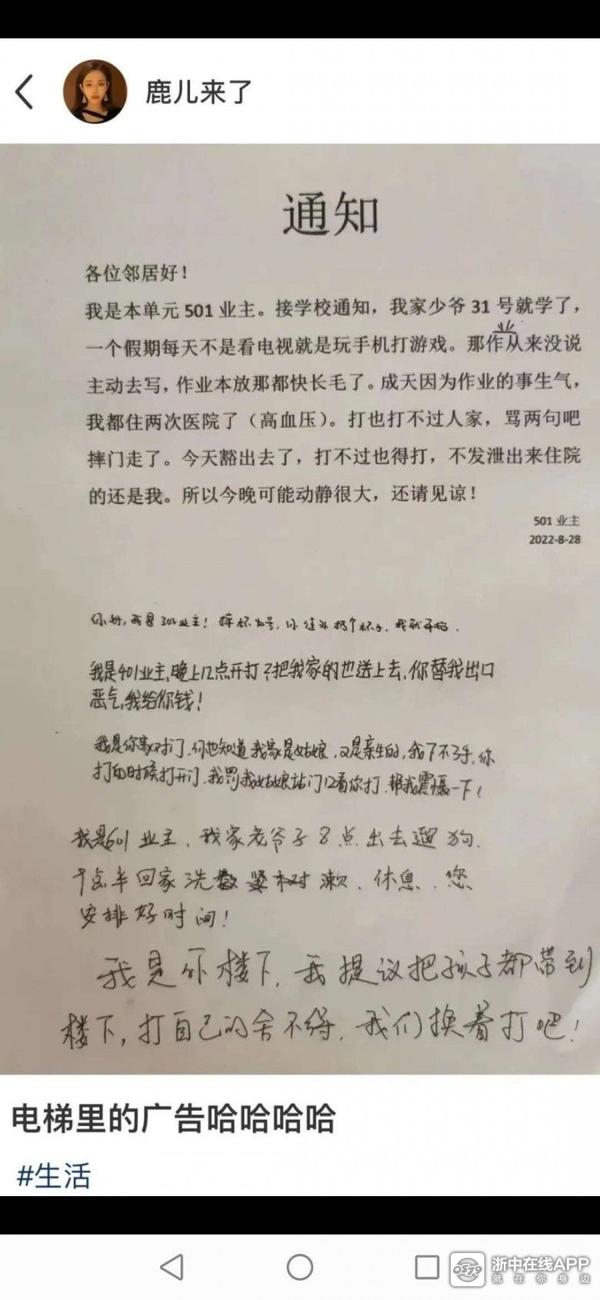 鹿儿来了
通知
各位邻居好！
我是本单元 501 业主。接学校通知，我家少爷 31 号就学了，
一个假期每天不是看电视就是玩手机打游戏。那作业从来没说
主动去写，作业本放那都快长毛了。成天因为作业的事生气，
我都住两次医院了（高血压）。打也打不过人家，骂两句吧
摔门走了。今天豁出去了，打不过也得打，不发泄出来住院
的还是我。所以今晚可能动静很大，还请见谅！
501 业主
2022-8-28
你好，我是301业主！摔杯为号，你往外扔个杯子，我就开始．
我是401业主，晚上12点开打？把我家的也送上去，你替我出口
恶气，我给你钱！
我是你家对门，你也知道我家是姑娘，又是亲生的，我下不了手，你
打的时候打开门，我罚我姑娘站门口看你打，帮我震慑一下！
我是601业主，我家老爷子8点出去遛狗．
半回家洗漱．休息．您
安排好时间！
我是你楼下，我提议把孩子都带到
楼下，打自己的舍不得，我们换着打吧！
电梯里的广告哈哈哈哈
#生活
浙中在线APP
就在你身边